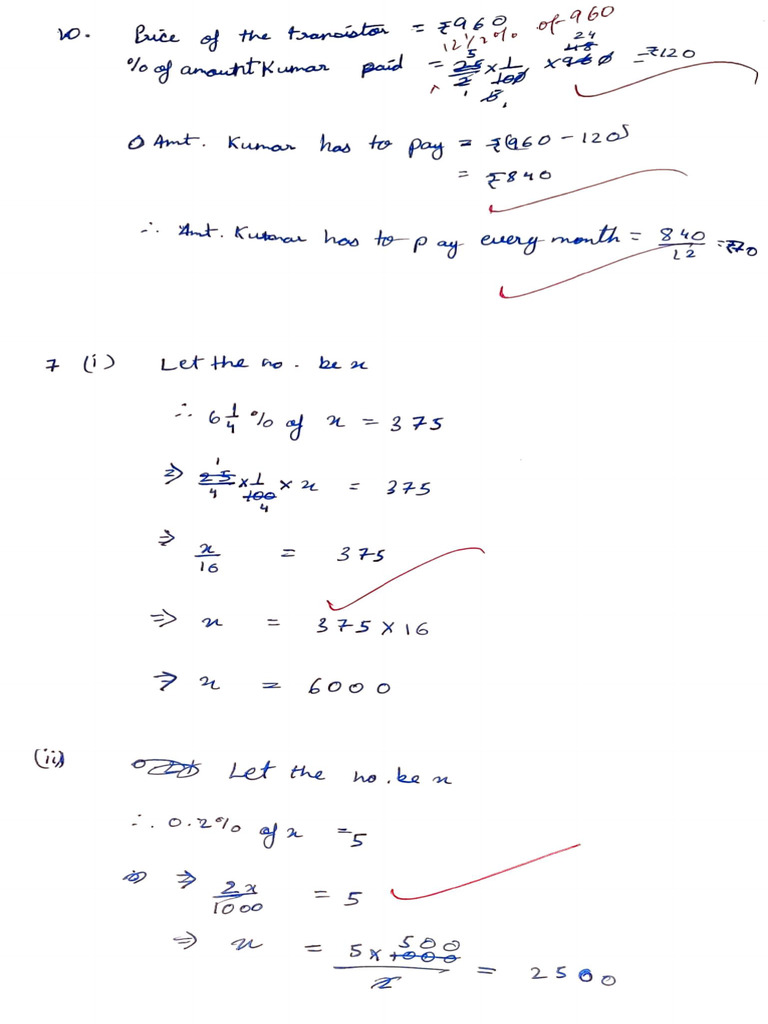 10. Price of the transistor = ₹960
12 1/2% of 960
% of amount Kumar paid = 25/2 × 1/100 × 960 = ₹120
5 24 48
1 8 1
Amt. Kumar has to pay = ₹(960 - 120)
= ₹840
∴ Amt. Kumar has to pay every month = 840/12 = ₹70
7 (i) Let the no. be x
∴ 6 1/4 % of x = 375
⇒ 25/4 × 1/100 × x = 375
1 4
⇒ x/16 = 375
⇒ x = 375 × 16
⇒ x = 6000
(ii) Let the no. be x
∴ 0.2% of x = 5
⇒ 2x/1000 = 5
⇒ x = 5 × 1000/2 = 2500
500